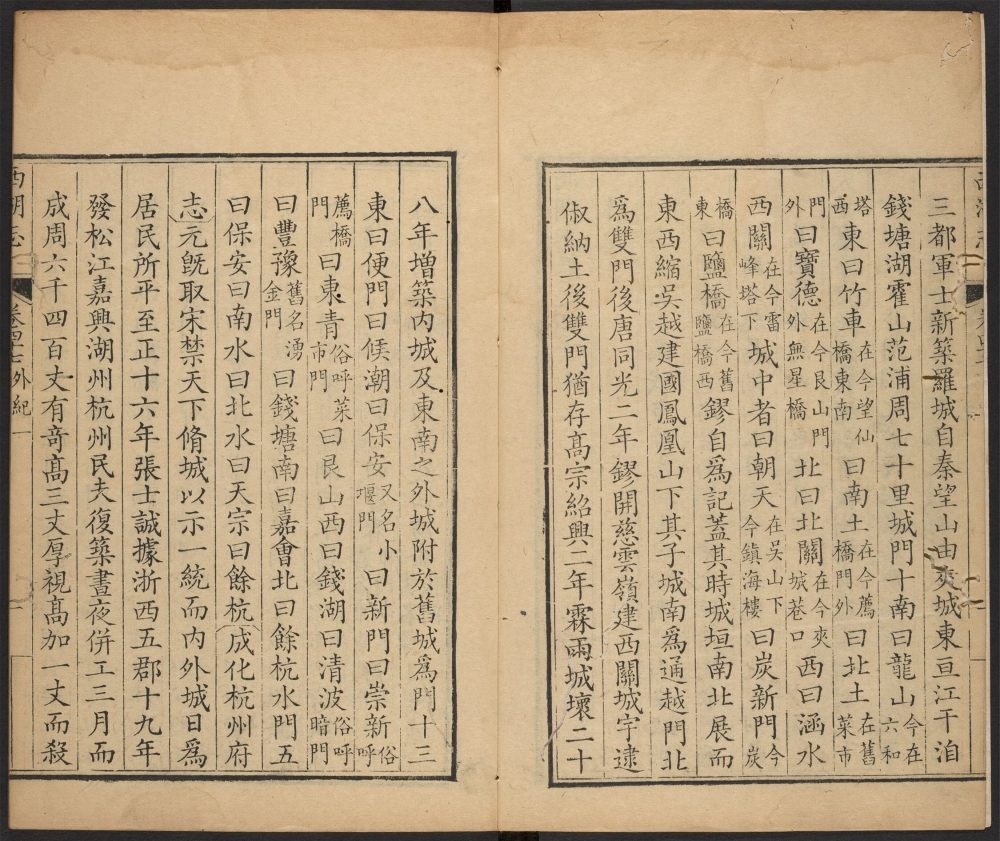 三都軍士新築羅城自秦望山由夾城東亘江干洎
錢塘湖霍山范浦周七十里城門十南曰龍山今在六和
塔西東曰竹車在今望仙橋東南曰南土在今薦橋門外曰北土在舊菜市
門外曰寶德在今艮山門外無星橋北曰北關在今夾城巷口西曰涵水
西關在今雷峰塔下城中者曰朝天在吳山下今鎮海樓曰炭新門今炭
橋東曰鹽橋在今舊鹽橋西鏐自爲記蓋其時城垣南北展而
東西縮吳越建國鳳凰山下其子城南爲通越門北
爲雙門後唐同光二年鏐開慈雲嶺建西關城宇逮
俶納土後雙門猶存高宗紹興二年霖雨城壞二十
八年增築内城及東南之外城附於舊城爲門十三
東曰便門曰候潮曰保安又名小堰門曰新門曰崇新俗呼
薦橋門曰東青俗呼菜市門曰艮山西曰錢湖曰清波俗呼暗門
曰豐豫舊名湧金門曰錢塘南曰嘉會北曰餘杭水門五
曰保安曰南水曰北水曰天宗曰餘杭成化杭州府
志元旣取宋禁天下脩城以示一統而内外城日爲
居民所平至正十六年張士誠據浙西五郡十九年
發松江嘉興湖州杭州民夫復築晝夜併工三月而
成周六千四百丈有竒髙三丈厚視髙加一丈而殺
西湖志 外紀